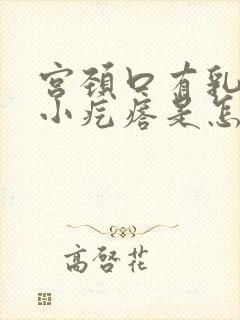 宫颈口有乳
小疙瘩是怎
高啓花